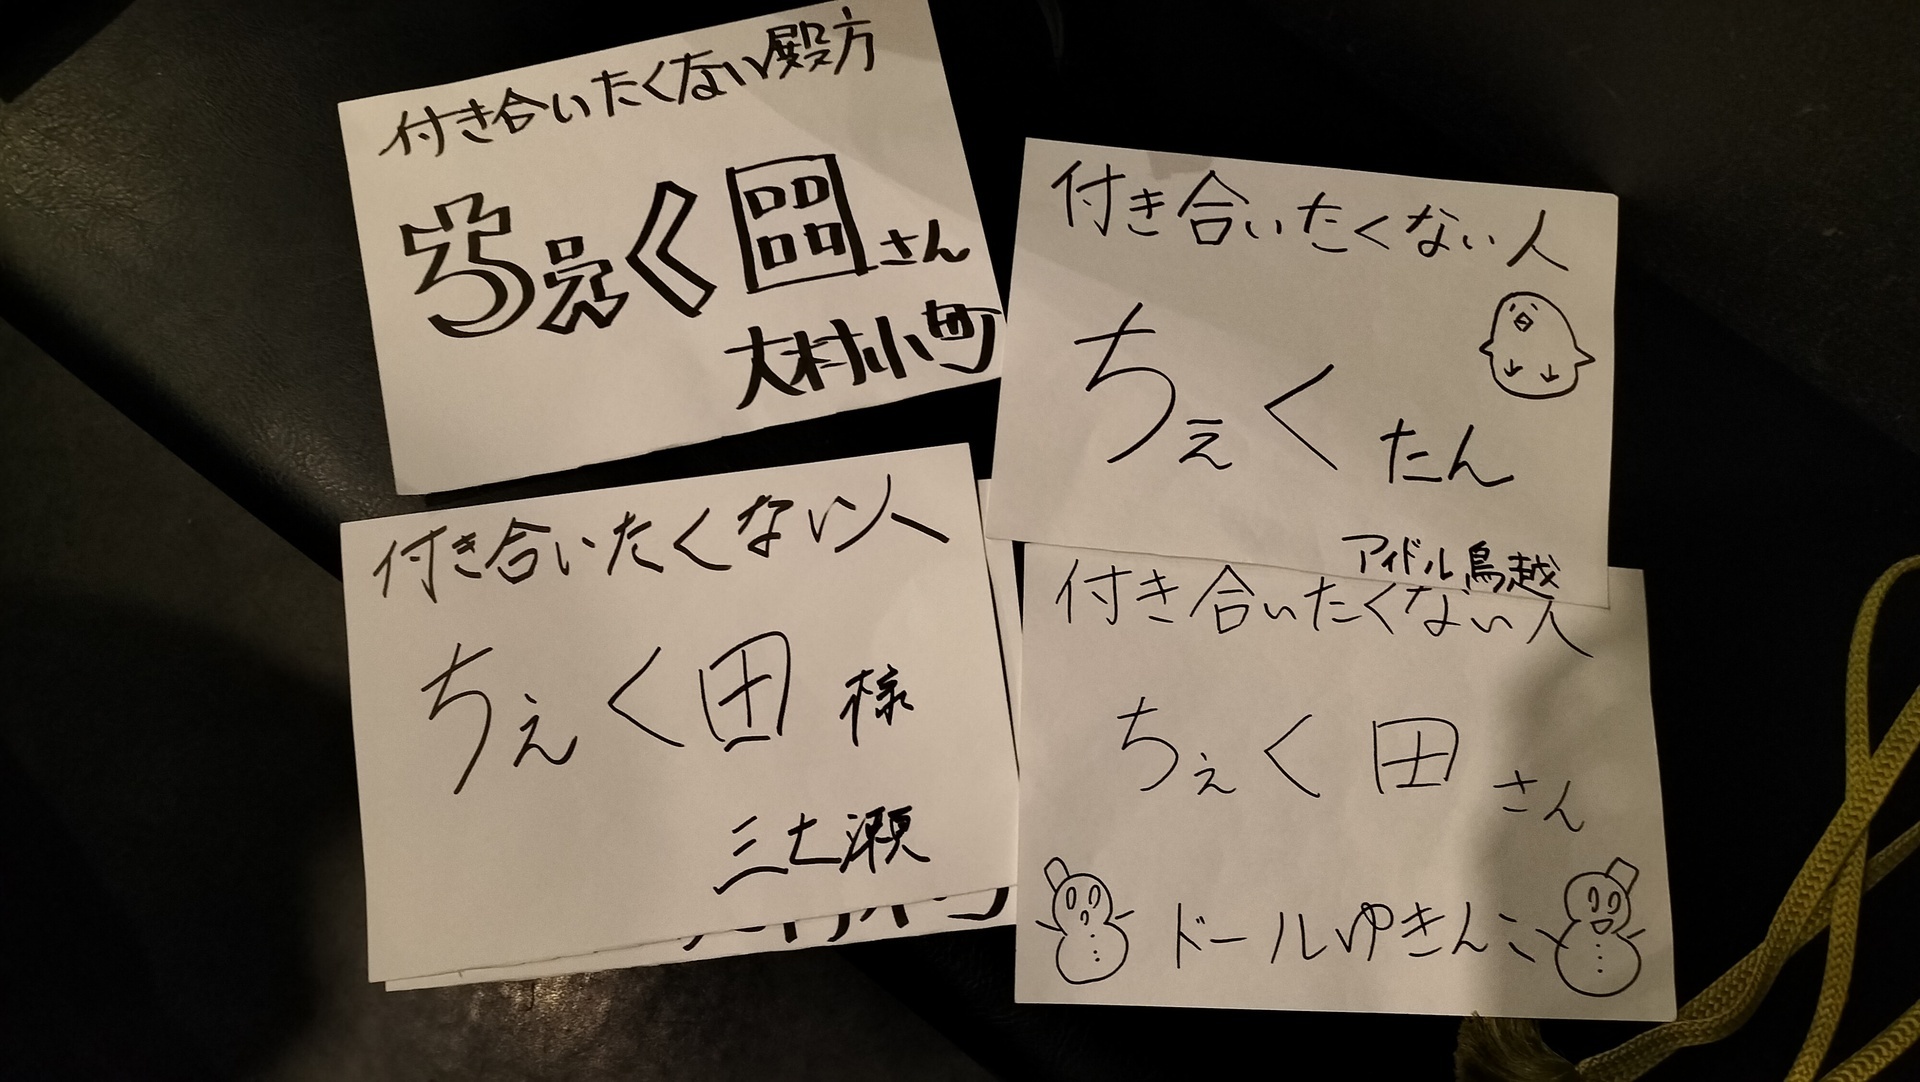 付き合いたくない殿方
ちぇく田さん
大村小町
付き合いたくない人
ちぇくたん
アイドル鳥越
付き合いたくない人
ちぇく田様
三七瀬
付き合いたくない人
ちぇく田さん
ドールゆきんこ